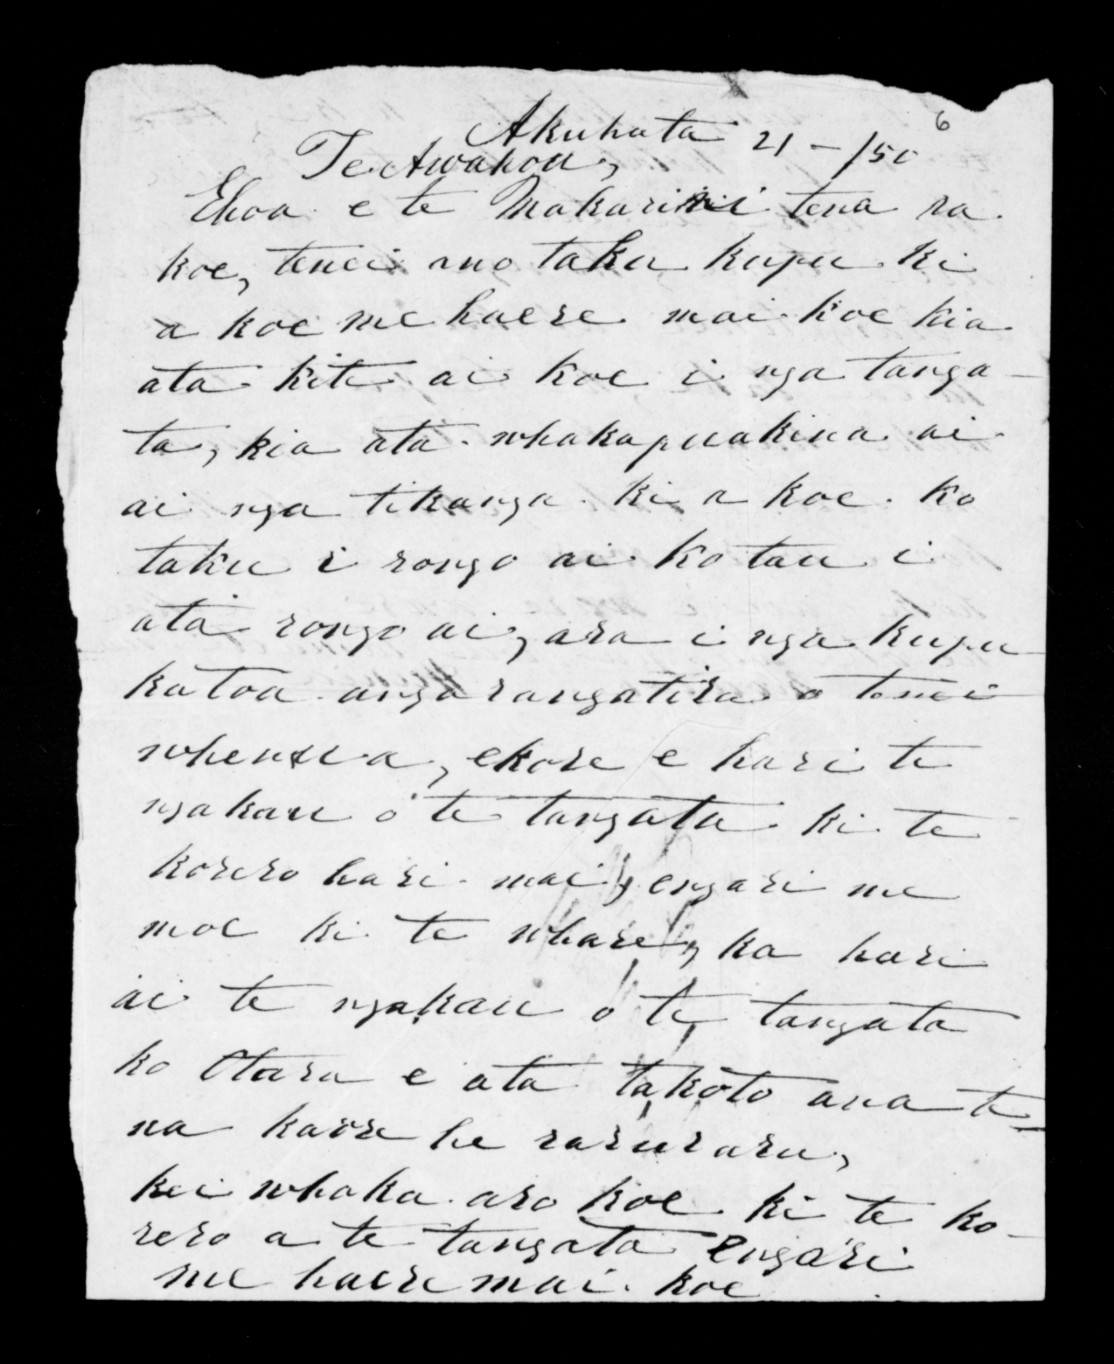 6
Akuhata 21 – /50
Te Awahou,
Ehoa e te Makarini tena ra
koe, tenei ano taku kupu ki
a koe me haere mai koe kia
ata kite ai koe i nga tanga-
ta, kia ata whakapuakina ai
ai nga tikanga ki a koe. ko
taku i rongo ai ko tau i
ata rongo ai, ara i nga kupu
katoa anga rangatira o tenei
whenua, ekore e hari te
ngakau o te tangata ki te
korero hari mai, engari me
moe ki te whare, ka hari
ai te ngakau o te tangata
ko Otara e ata takoto ana te=
na kaore he raruraru,
kei whaka aro koe ki te ko-
rero a te tangata Engari
me haere mai koe